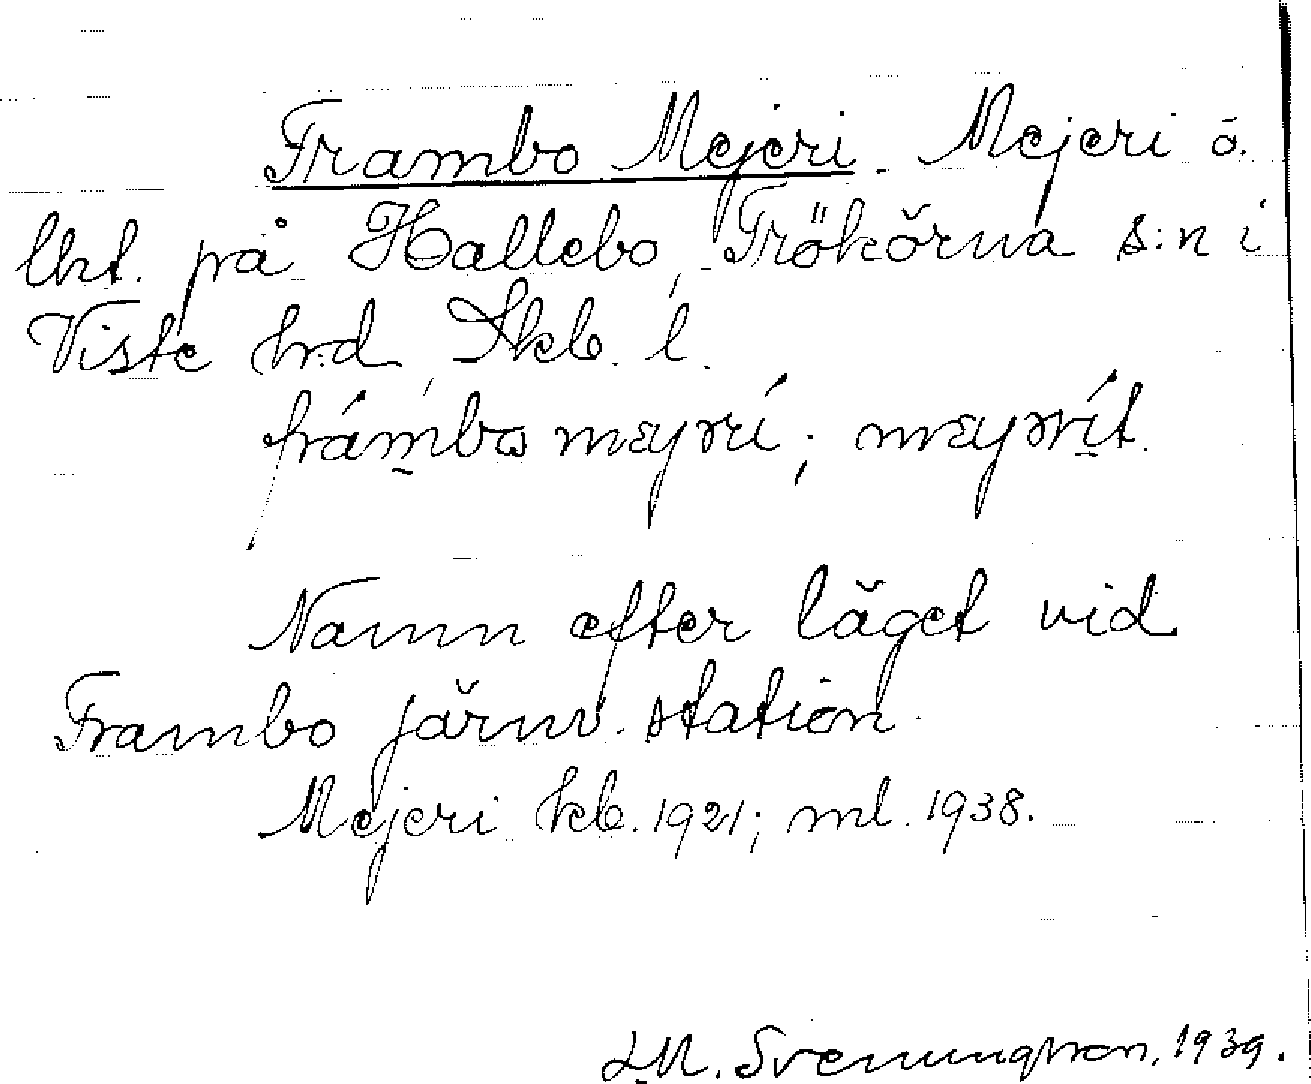 Frambo Mejeri. Mejeri o.
lht. på Hallebo, Frökörna s:n i
Viste hrd, Skb. l.
Namn efter läget vid
Frambo järnv. station.
Mejeri kb. 1921; ml. 1938.
Svenungsson, 1939.